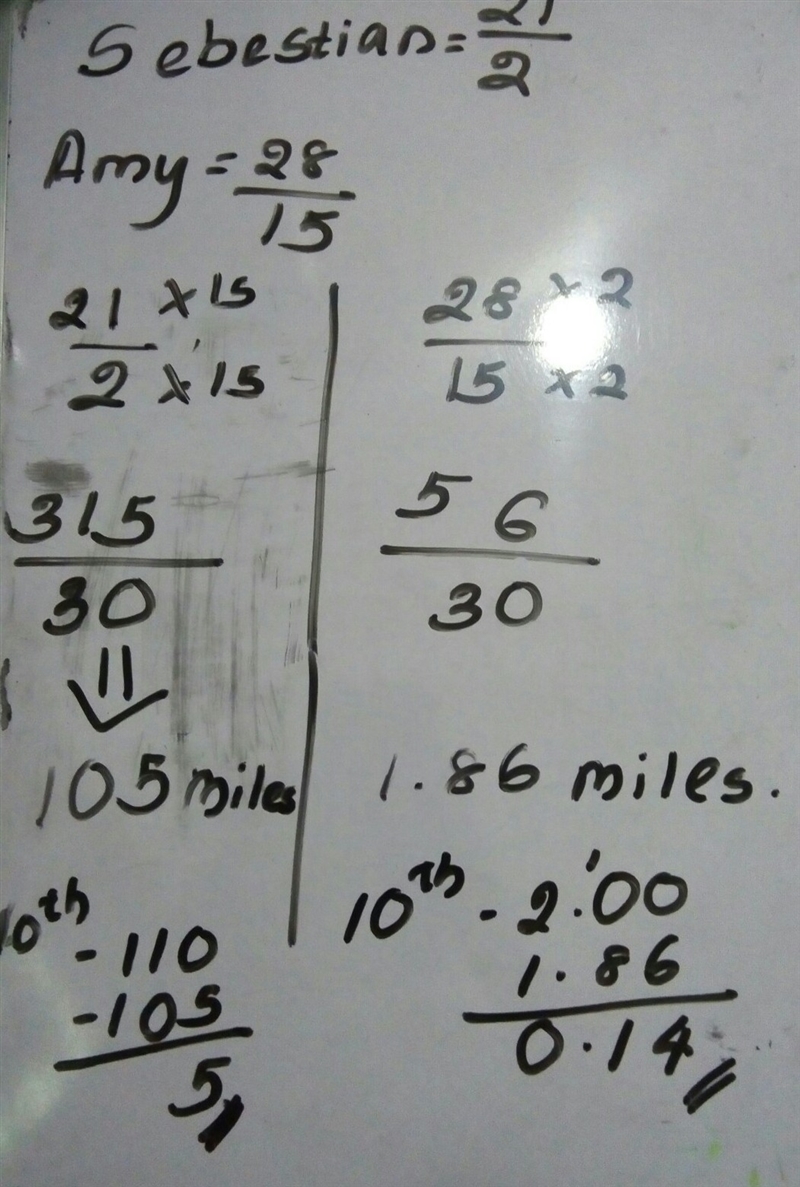 Sebestian = 21/2
Amy = 28/15
21 × 15
2 × 15
315
30
105 miles
10th - 110
- 105
5
28 × 2
15 × 2
56
30
1.86 miles.
10th - 2.'00
1.86
0.14